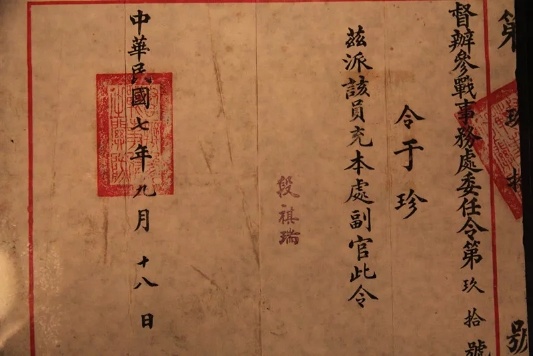 第玖拾號
督辦參戰事務處委任令第玖拾號
令于珍
茲派該員充本處副官此令
段祺瑞
中華民國七年九月十八日